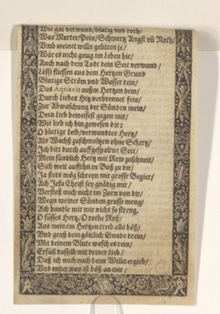 Wie gar verwund/blutig und roth/
Was Marter/Pein/Schmertz Angst uñ Noth/
Umb meinet willn gelitten je/
Wär es nicht gnug im leben hie/
Auch nach dem Todt dein Seit verwund/
Läßt fliessen aus dem Hertzen Grund
Blutige Ström und Wasser rein/
Das Aquavit aussm Hertzen dein/
Durch liebes Hitz verbrennet fein/
Zur Abwaschung der Sünden mein/
Dein Lieb beweisest gegen mir/
Wie lieb ich bin gewesen dir:
O blutige verwundtes Hertz/
Als Wachß zuschmoltzen ohne Schertz/
Ich bitt durch auffgespaltne Seit/
Mein sündlich Hertz mit Rew zuschneit/
Sich weit auffthu in Buß zu dir/
Ja stets mög schreyen mit grosser Begier/
Ach Jesu Christ sey gnädig mir/
Verstoß mich nicht im Zorn von dir/
Wegn meiner Sünden grosse meng/
Ach handle mit mir nicht so streng,
O süsses Hertz/O rothe Roß/
Aus meinem Hertzen treib alls böß/
Und geuß dein göttlich Gnade drein/
Mit deinem Blute wasch es rein/
Erfüll dasselb mit deiner Lieb/
Daß ich mich nach deim Willn ergieb/
Und was ist böß an mir/